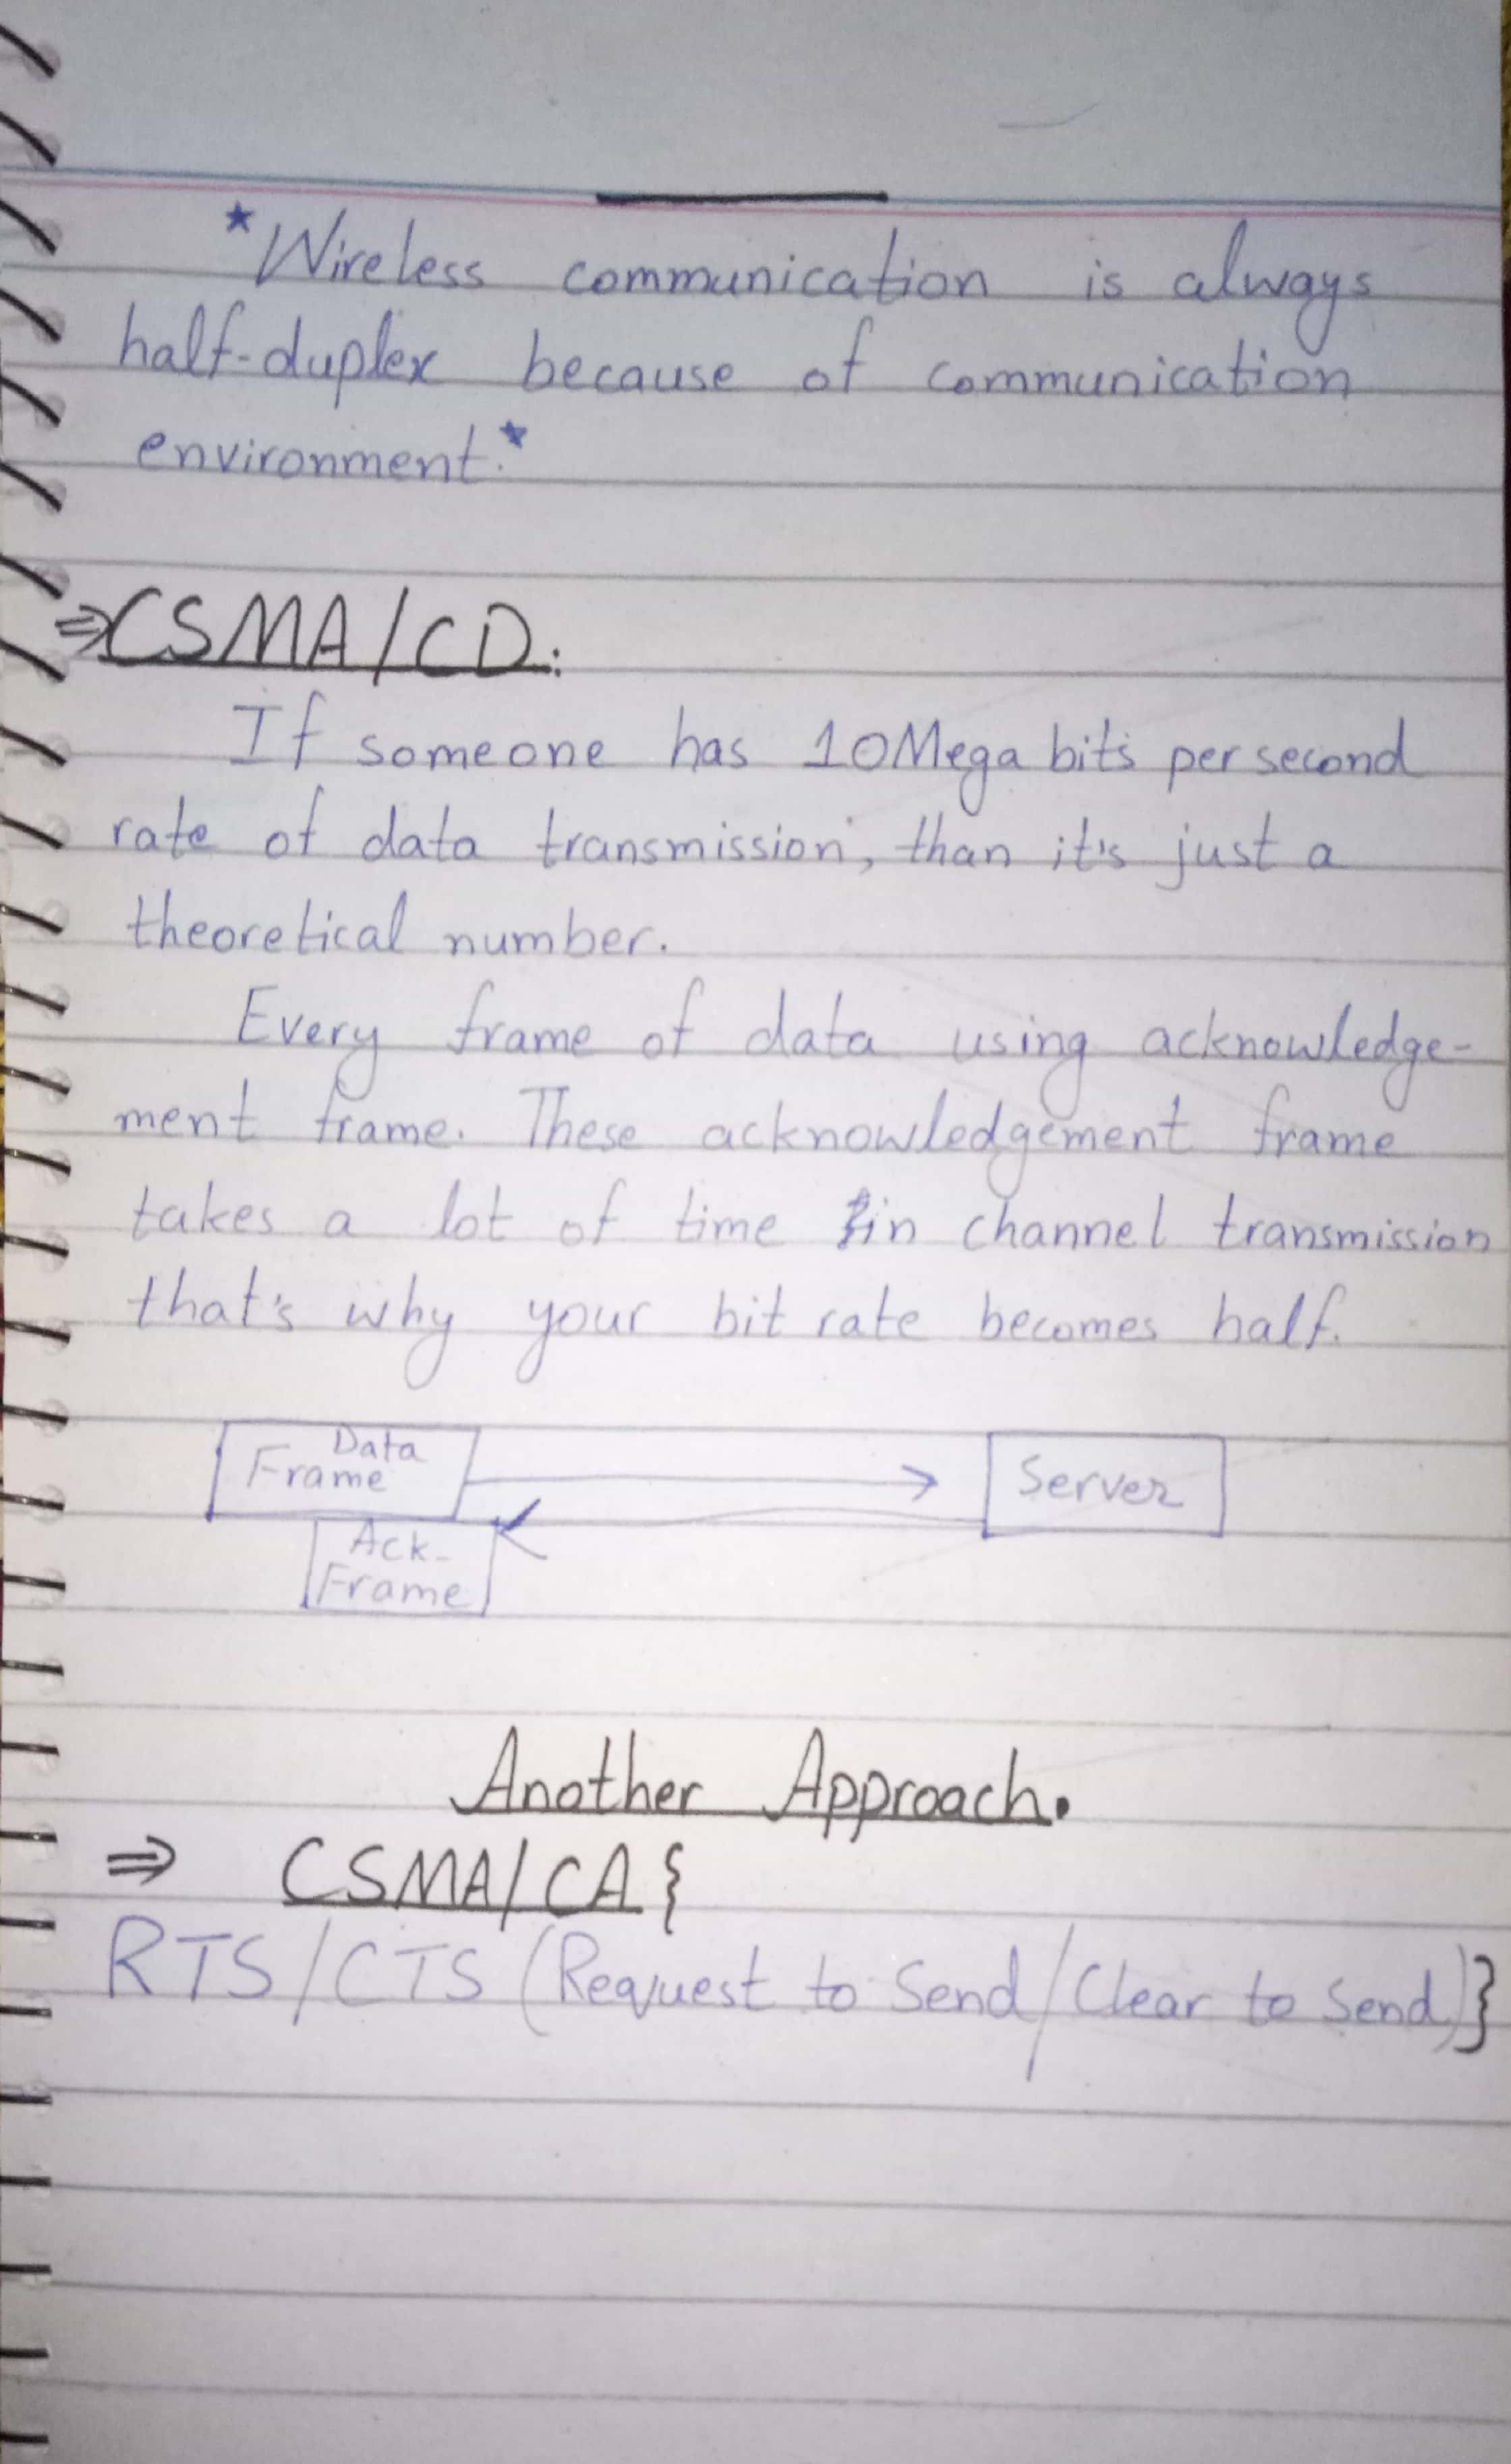 *Wireless communication is always
half-duplex because of communication
environment.*
⇒CSMA/CD:
If someone has 10Mega bits per second
rate of data transmission, than it's just a
theoretical number.
Every frame of data using acknowledge-
ment frame. These acknowledgement frame
takes a lot of time in channel transmission
that's why your bit rate becomes half.
Data
Frame
Server
Ack-
Frame
Another Approach.
⇒ CSMA/CA{
RTS/CTS (Request to Send/Clear to Send)}